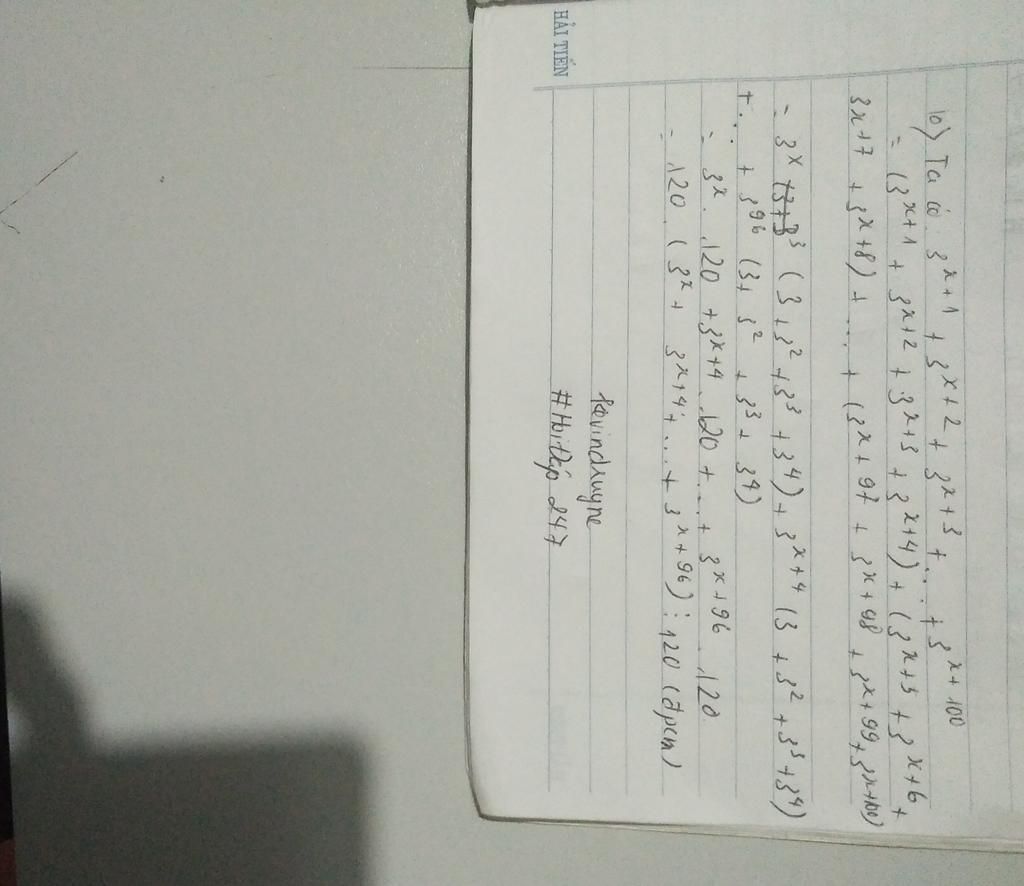 HẢI TIẾN
b) Ta có: 3^{x+1} + 3^{x+2} + 3^{x+3} + ... + 3^{x+100}
= (3^{x+1} + 3^{x+2} + 3^{x+3} + 3^{x+4}) + (3^{x+5} + 3^{x+6} +
3x+7 + 3^{x+8}) + .... + (3^{x+97} + 3^{x+98} + 3^{x+99} + 3^{x+100})
= 3^x (3 + 3^2 + 3^3 + 3^4) + 3^{x+4} (3 + 3^2 + 3^3 + 3^4)
+ ... + 3^{96} (3 + 3^2 + 3^3 + 3^4)
= 3^x . 120 + 3^{x+4} . 120 + ... + 3^{x+96} . 120
= 120 . (3^x + 3^{x+4} + ... + 3^{x+96}) ⋮ 120 (đpcm)
#Hoidap 247